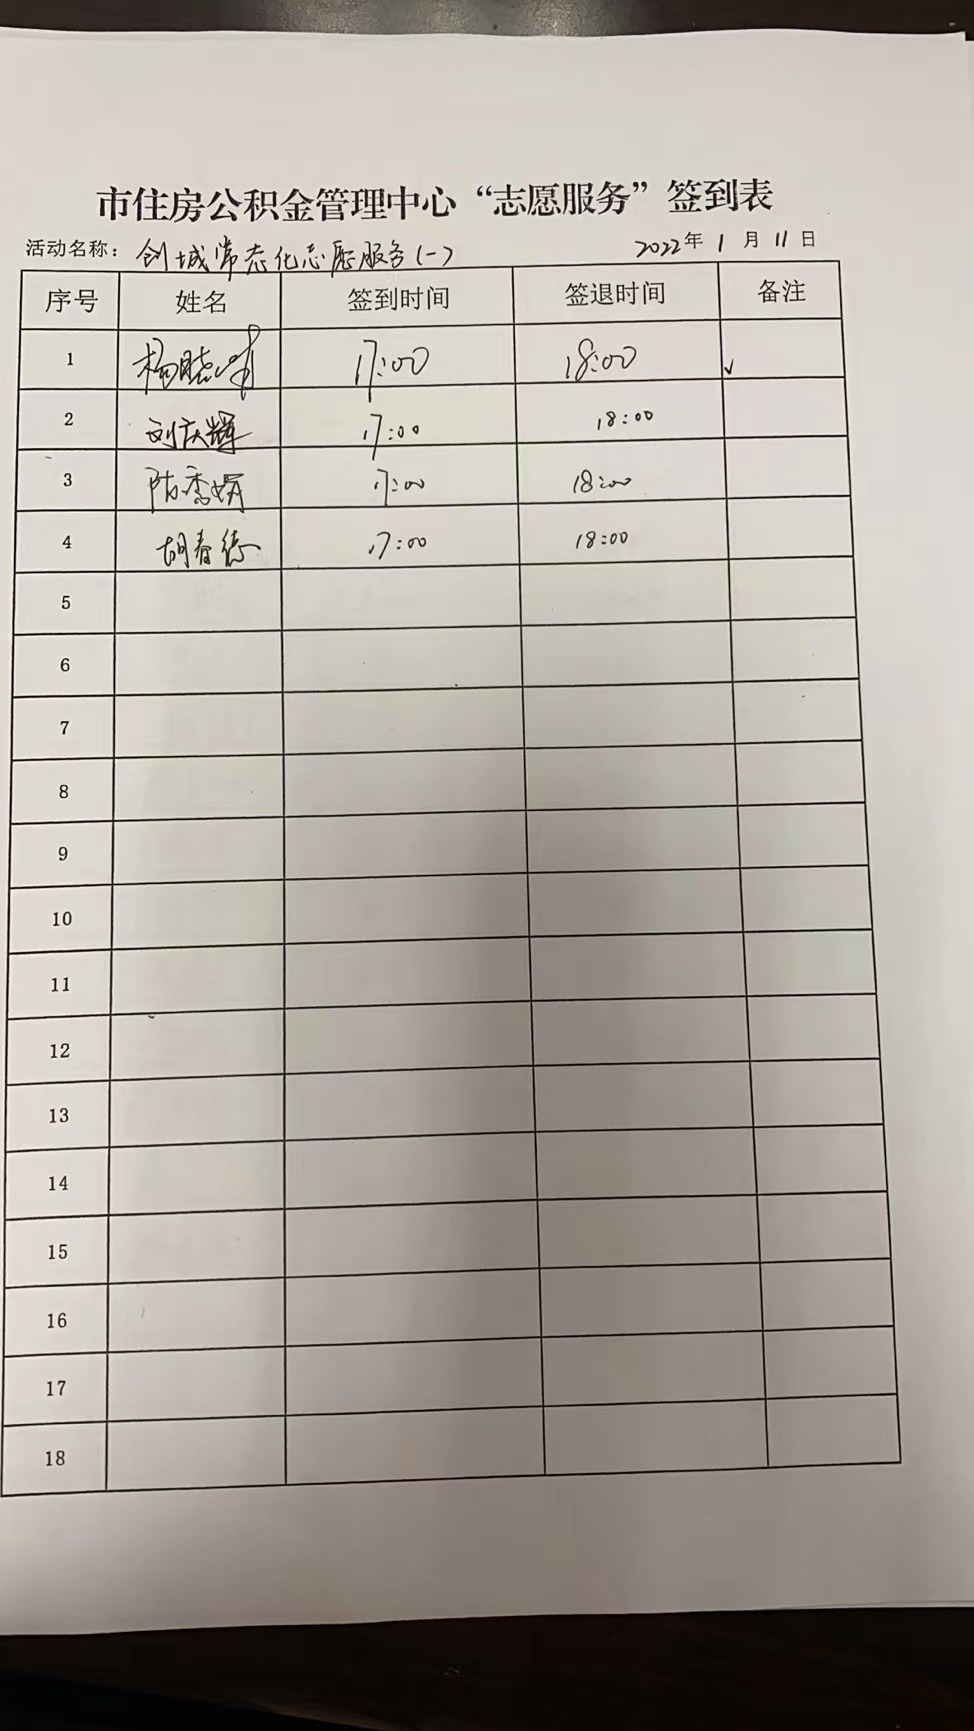 市住房公积金管理中心“志愿服务”签到表
活动名称：创城常态化志愿服务(一) 2022年 1 月 11 日
序号 姓名 签到时间 签退时间 备注
1 杨晓 17:00 18:00 ✓
2 刘庆辉 17:00 18:00
3 陈季娟 17:00 18:00
4 胡春德 17:00 18:00
5
6
7
8
9
10
11
12
13
14
15
16
17
18